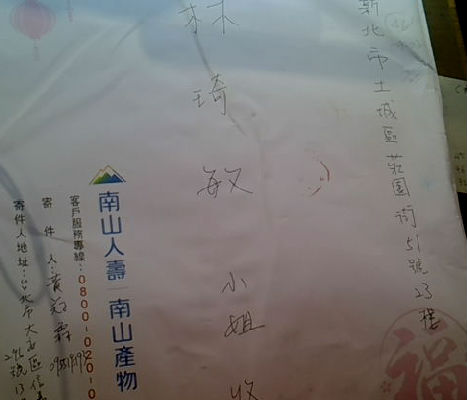 新北市土城區莊園街51號23樓
林琦敏小姐收
南山人壽 南山產物
客戶服務專線:0800-020-0
寄件人:黃
寄件人地址:台北市大 區信
號13
福